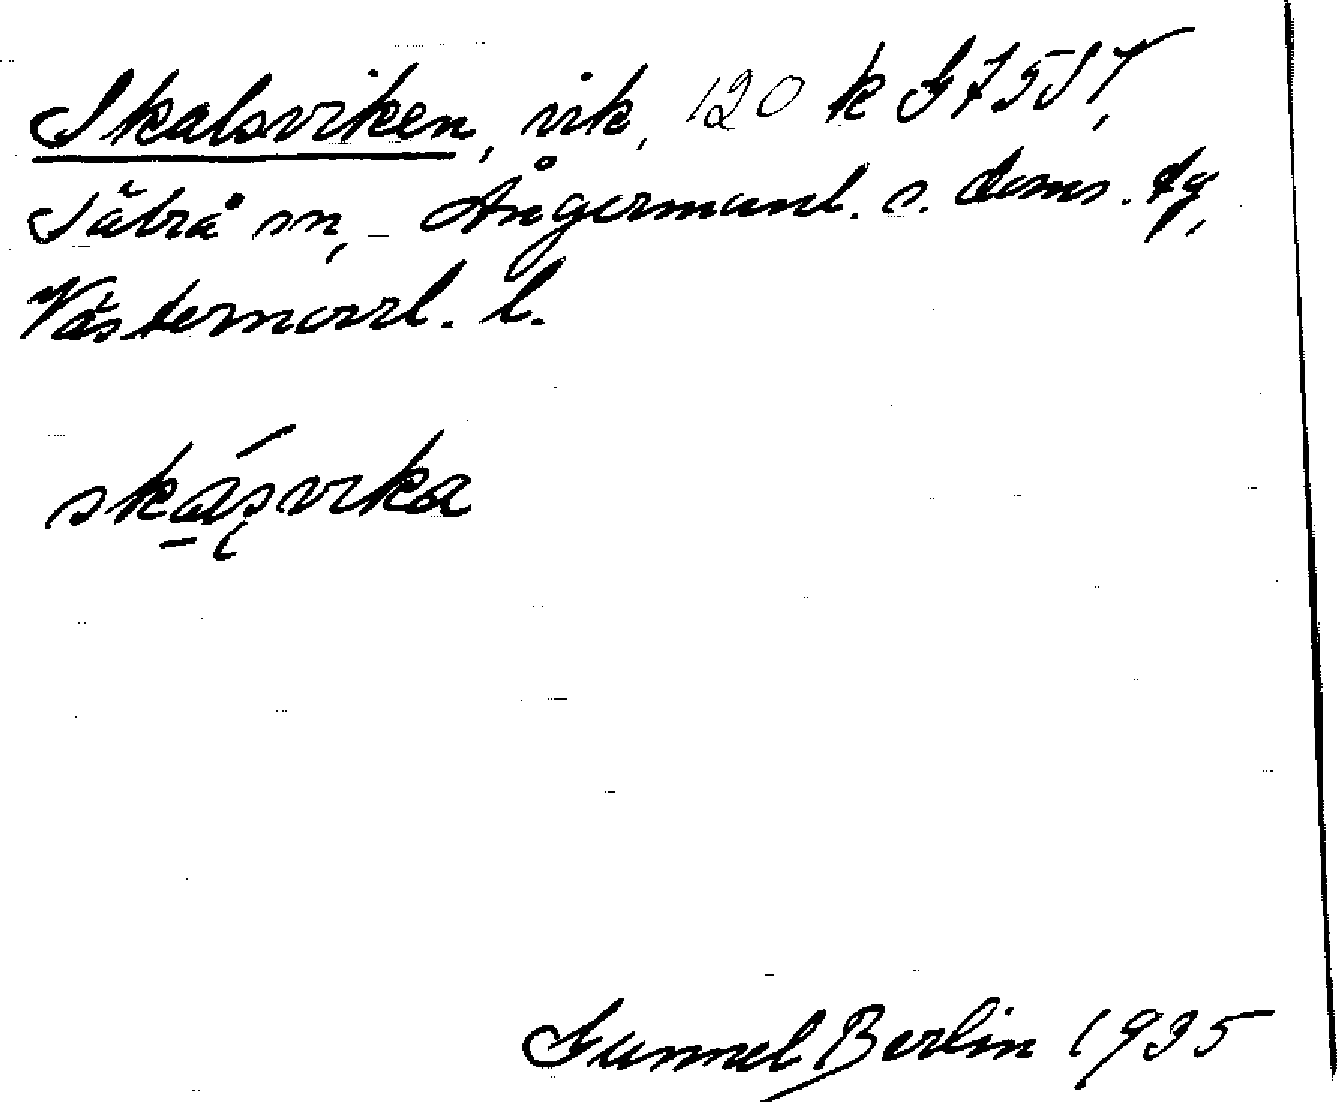 Skalsviken, vik, 120 k G 7 5 S V,
Säbrå sn, Ångermanl. s. doms. tg,
Västernorrl. l.
skásvika
Gunnel Berlin 1935